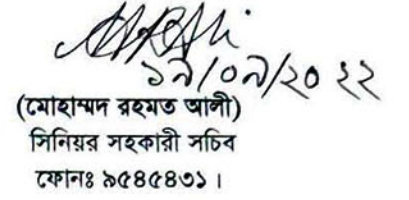 ১৯/০৯/২০২২
(মোহাম্মদ রহমত আলী)
সিনিয়র সহকারী সচিব
ফোনঃ ৯৫৪৫৪৩১।